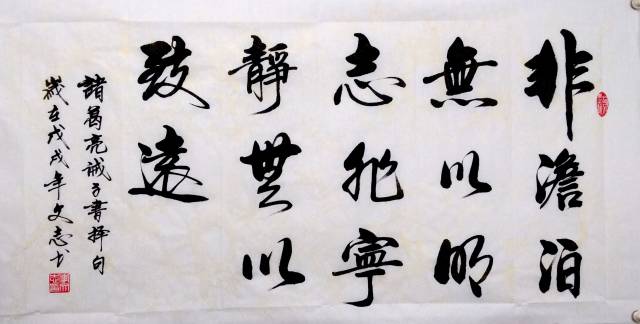 非澹泊
無以明
志非寧
靜無以
致遠
諸葛亮誡子書擇句
歲在戊戌年文志书